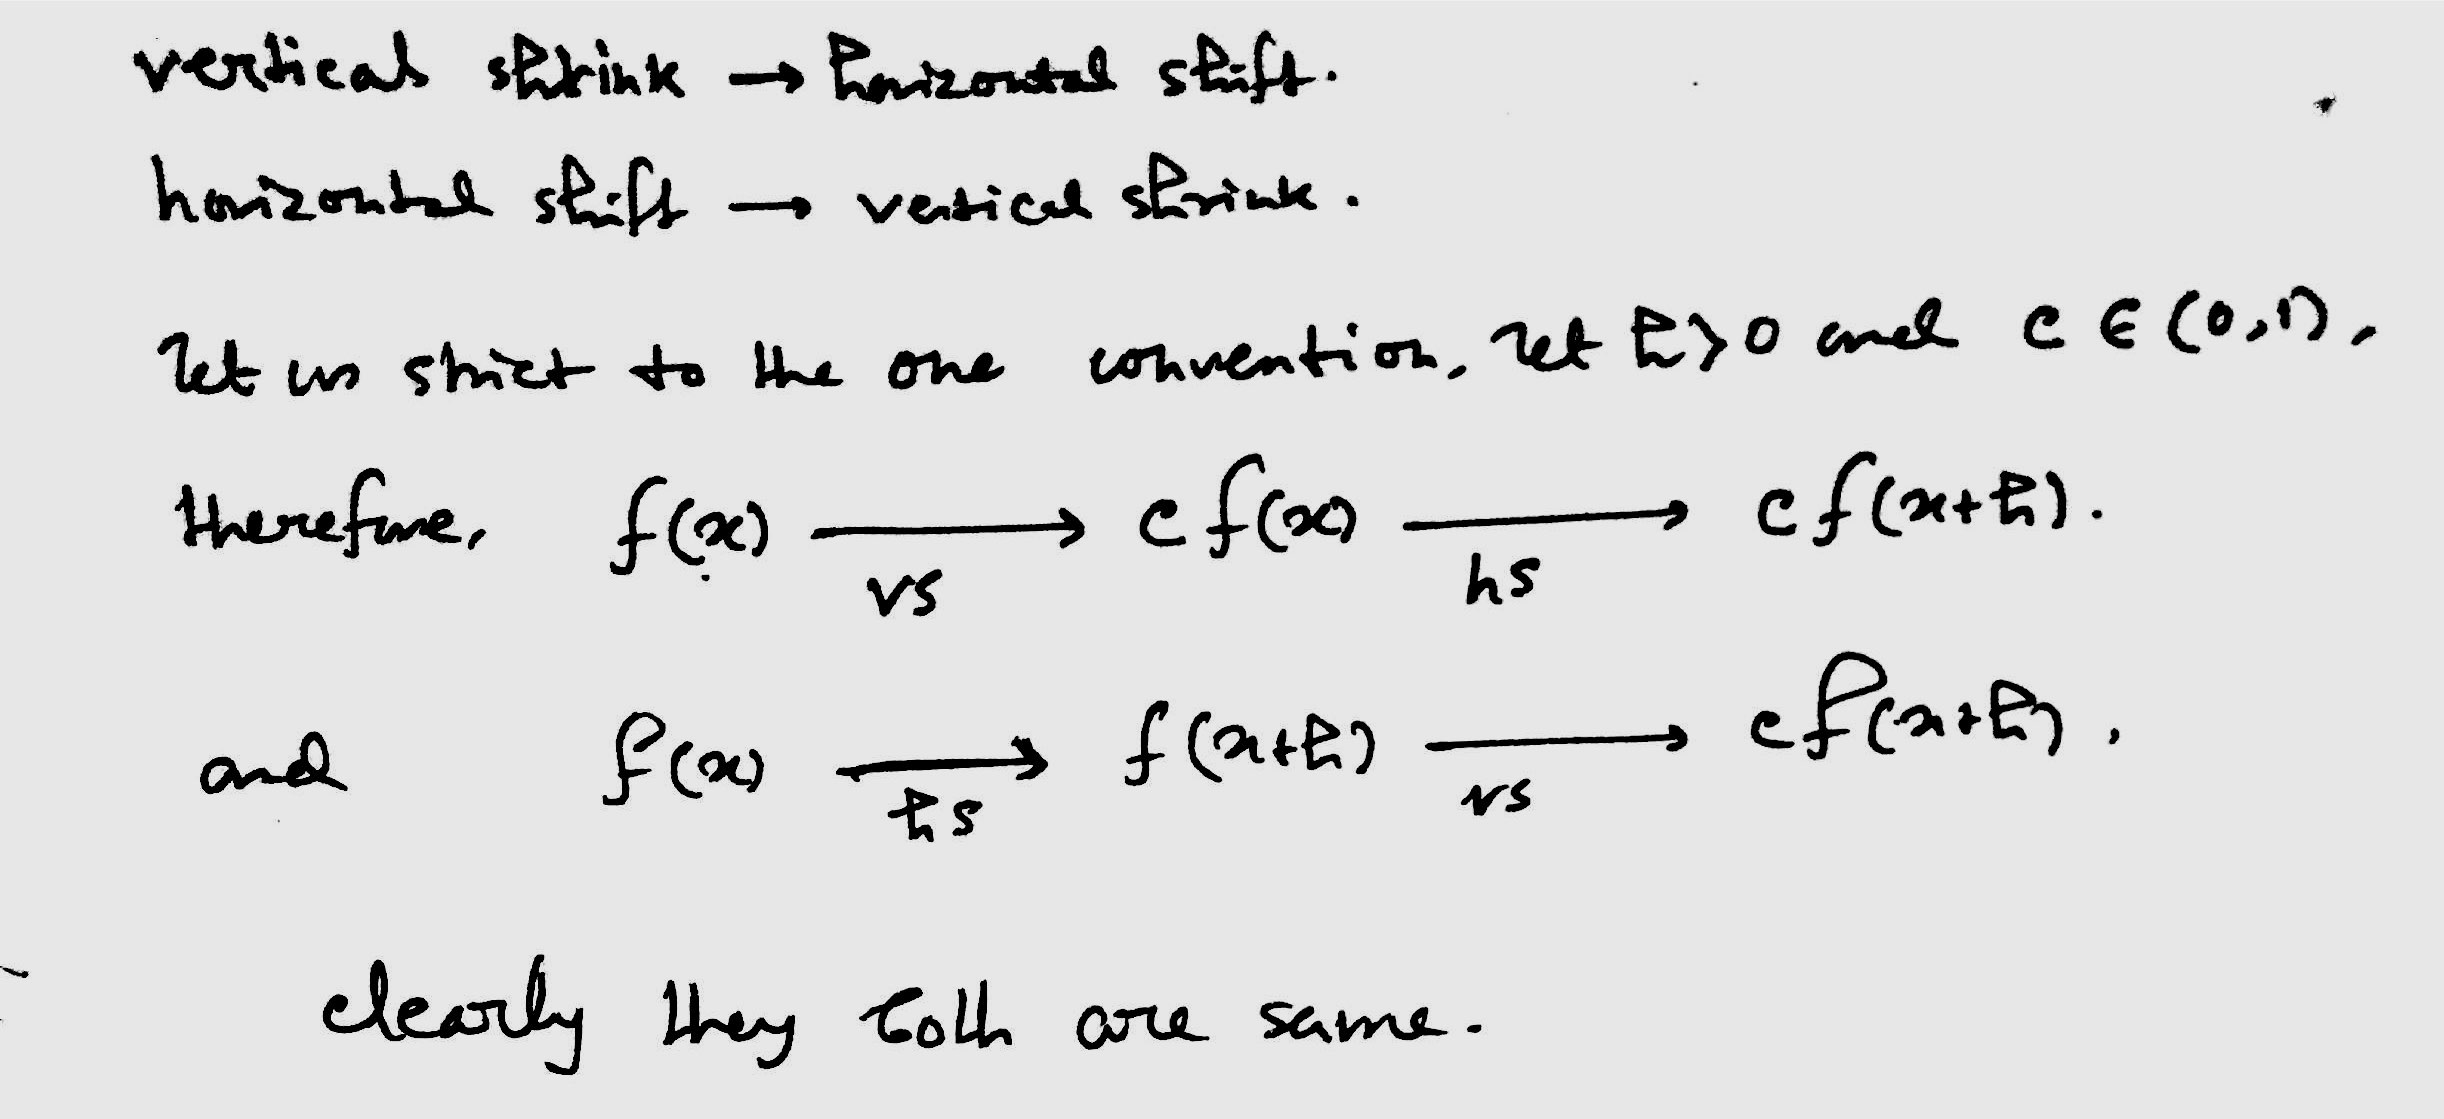 vertical shrink → horizontal shift.
horizontal shift → vertical shrink.
let us strict to the one convention, let h>0 and c ∈ (0,1),
therefore, f(x) ⟶ c f(x) ⟶ c f(x+h).
vs hs
and f(x) ⟶ f(x+h) ⟶ c f(x+h),
hs vs
clearly they both are same.